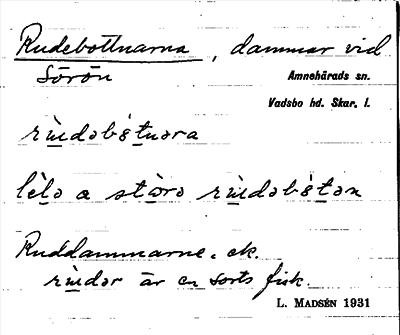 Rudebottnarna, dammar vid
Sörön
Amnehärads sn.
Vadsbo hd. Skar. l.
rùdəbòtnara
lèlə a stòrə rùdəbòtən
Ruddammarne. ek.
rùdər är en sorts fisk.
L. MADSÉN 1931